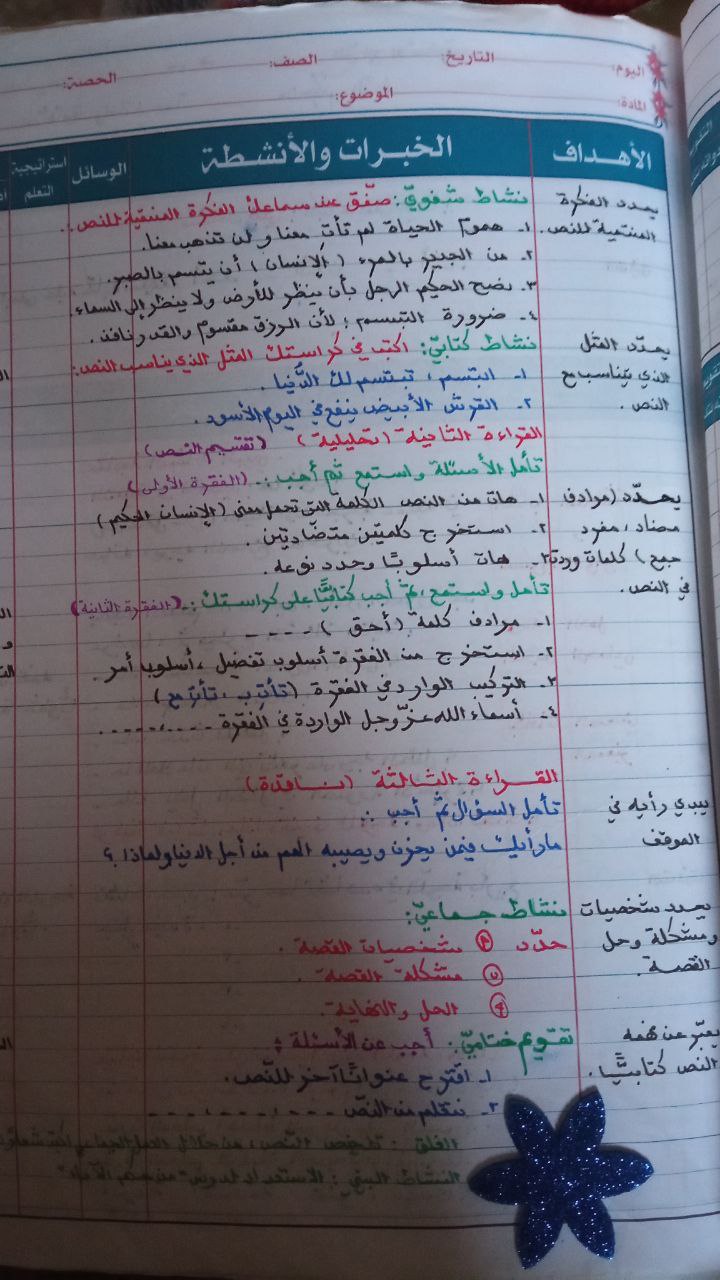 اليوم: التاريخ: الصف: الحصة:
المادة: الموضوع:
الأهداف الخبرات والأنشطة الوسائل استراتيجية التعلم
يحدد الفكرة نشاط شفويّ: صفّق عند سماعك الفكرة المنتمية للنص.
المنتمية للنص. ١- هموم الحياة لم تأت معنا ولن تذهب معنا.
٢- من الجدير بالمرء (الإنسان) أن يتسم بالصبر.
٣- نصح الحكيم الرجل بأن ينظر للأرض ولا ينظر إلى السماء.
٤- ضرورة التبسم؛ لأن الرزق مقسوم والقدر نافذ.
يحدّد المثل نشاط كتابيّ: اكتب في كراستك المثل الذي يناسب النص:
الذي يتناسب مع ١- ابتسم، تبتسم لك الدُّنيا.
النص. ٢- القرش الأبيض ينفع في اليوم الأسود.
القراءة الثانية (تحليلية) (تقسيم النص)
تأمل الأسئلة واستمع ثم أجب:- (الفقرة الأولى)
يحدّد (مرادف ١- هات من النص الكلمة التي تحمل معنى (الإنسان الحكيم)
مضاد، مفرد ٢- استخرج كلمتين متضادّتين.
جمع) كلمات وردت ٣- هات أسلوبًا وحدد نوعه.
في النص. تأمل واستمع، ثمّ أجب كتابيًّا على كراستك:- (الفقرة الثانية)
١- مرادف كلمة (أحق) ----
٢- استخرج من الفقرة أسلوب تفضيل، أسلوب أمر
٣- التركيب الوارد في الفقرة (تأترب، تأتزمع)
٤- أسماء الله عزّ وجل الواردة في الفقرة ----،-----
القراءة الثالثة (ناقدة)
يبدي رأيه في تأمل السؤال ثمّ أجب:
الموقف ما رأيك فيمن يحزن ويصيبه الهم من أجل الدنيا ولماذا؟
يحدد شخصيات نشاط جماعيّ:
ومشكلة وحل حدّد شخصيات القصة.
القصة. مشكلة القصة.
الحل والنهاية.
يعبّر عن فهمه تقويم ختاميّ: أجب عن الأسئلة:
النص كتابيًّا. ١- اقترح عنوانًا آخر للنّص.
٢- نتعلم من النصّ ----،----،----
الغلق: تلخيص النّص، من خلال
النشاط البيتي: الاستعداد لدرس